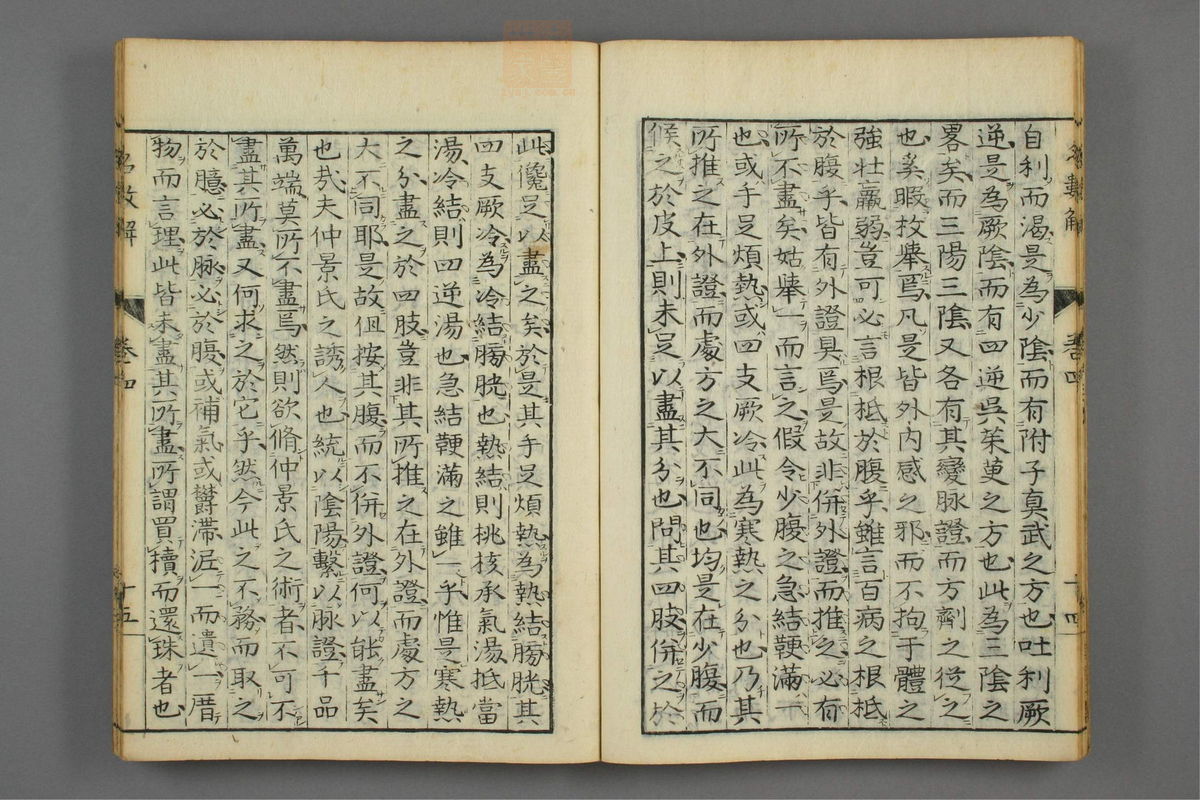 自利而渴是為少陰而有附子真武之方也吐利厥
逆是為厥陰而有四逆吳茱萸之方也此為三陰之
畧矣而三陽三陰又各有其變脉證而方劑之從之
也奚暇枚舉焉凡是皆外内感之邪而不拘于體之
強壯羸弱豈可必言根柢於腹乎雖言百病之根柢
於腹乎皆有外證具焉是故非併外證而推之必有
所不盡矣姑舉一而言之假令少腹之急結鞕滿一
也或手足煩熱或四支厥冷此為寒熱之分也乃其
所推之在外證而處方之大不同也均是在少腹而
候之於皮上則未足以盡其分也問其四肢併之於
此儳足以盡之矣於是其手足煩熱為熱結膓胱其
四支厥冷為冷結膓胱也熱結則桃核承氣湯抵當
湯冷結則四逆湯也急結鞕滿之雖一乎惟是寒熱
之分盡之於四肢豈非其所推之在外證而處方之
大不同耶是故但按其腹而不併外證何以能盡矣
也哉夫仲景氏之誘人也統以陰陽繫以脉證千品
萬端莫所不盡焉然則欲脩仲景氏之術者不可不
盡其所盡又何求之於它乎然今此之不務而取之
於臆必於脉必於腹或補氣或欝滯泥一而遺一厝
物而言理此皆未盡其所盡所謂買犢而還珠者也
卷四
十四
卷四
十五